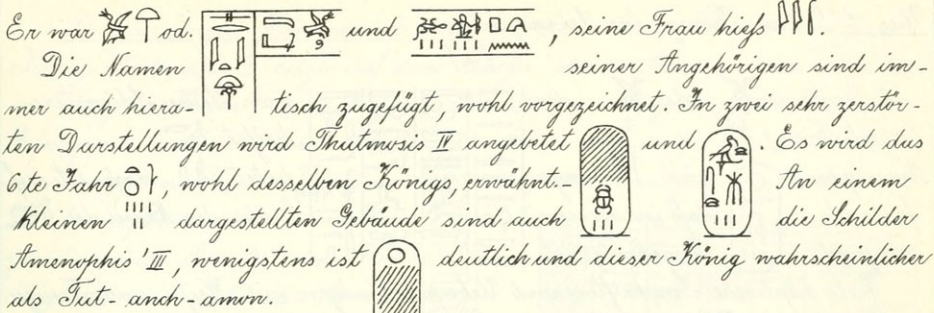 Er war od. und , seine Frau hieſs .
Die Namen seiner Angehörigen sind im-
mer auch hiera- tisch zugefügt, wohl vorgezeichnet. In zwei sehr zerstör-
ten Darstellungen wird Thutmosis IV angebetet und . Es wird das
6te Jahr , wohl desselben Königs, erwähnt. - An einem
kleinen dargestellten Gebäude sind auch die Schilder
Amenophis' III, wenigstens ist deutlich und dieser König wahrscheinlicher
als Tut-anch-amon.